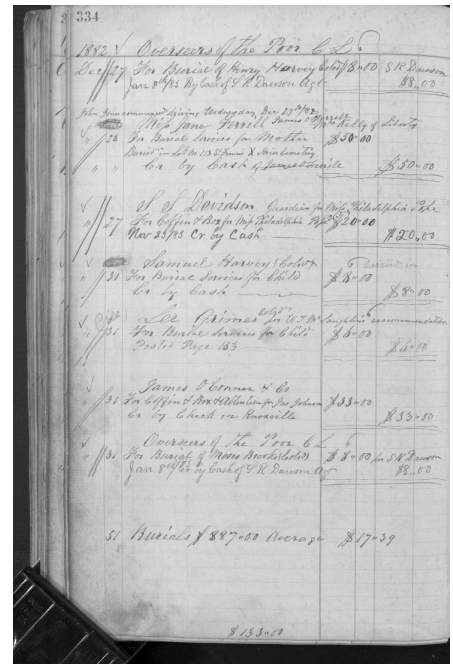 334
1882 Overseers of the Poor C L
Dec 27 For Burial of Henry Harvey Cold $8.00 S R Dawson
Jan 8th/83 By Cash of S R Dawson Agt $8.00
Wednesday Dec 27th/82
Miss Jane Ferrill Kelly of Liberty
28 For Burial Services for Mother $50.00
Buried in Lot No
" " Cr by Cash of James Ferrill $50.00
S S Davidson Guardian for Miss Philadelphia Pyle
" 27 For Coffin & Box for Miss Philadelphia Pyle $20.00
Nov 23/83 Cr by Cash $20.00
Samuel Harvey (Cold)
" 31 For Burial Services for Child $8.00
Cr by Cash $8.00
Lee Grimes Cold for recommendation
" 31 For Burial Services for Child $6.00
Posted Page 153 $6.00
James O'Conner & Co
" 31 For Coffin & Box & Attention for Jas Johnson $33.00
Cr by Check on Knoxville $33.00
Overseers of the Poor C L
" 31 For Burial of Moses Brooks (Cold) $8.00 for S R Dawson
Jan 8th/83 Cr by Cash of S R Dawson Ag $8.00
51 Burials $887.00 Average $17.39
$153.00